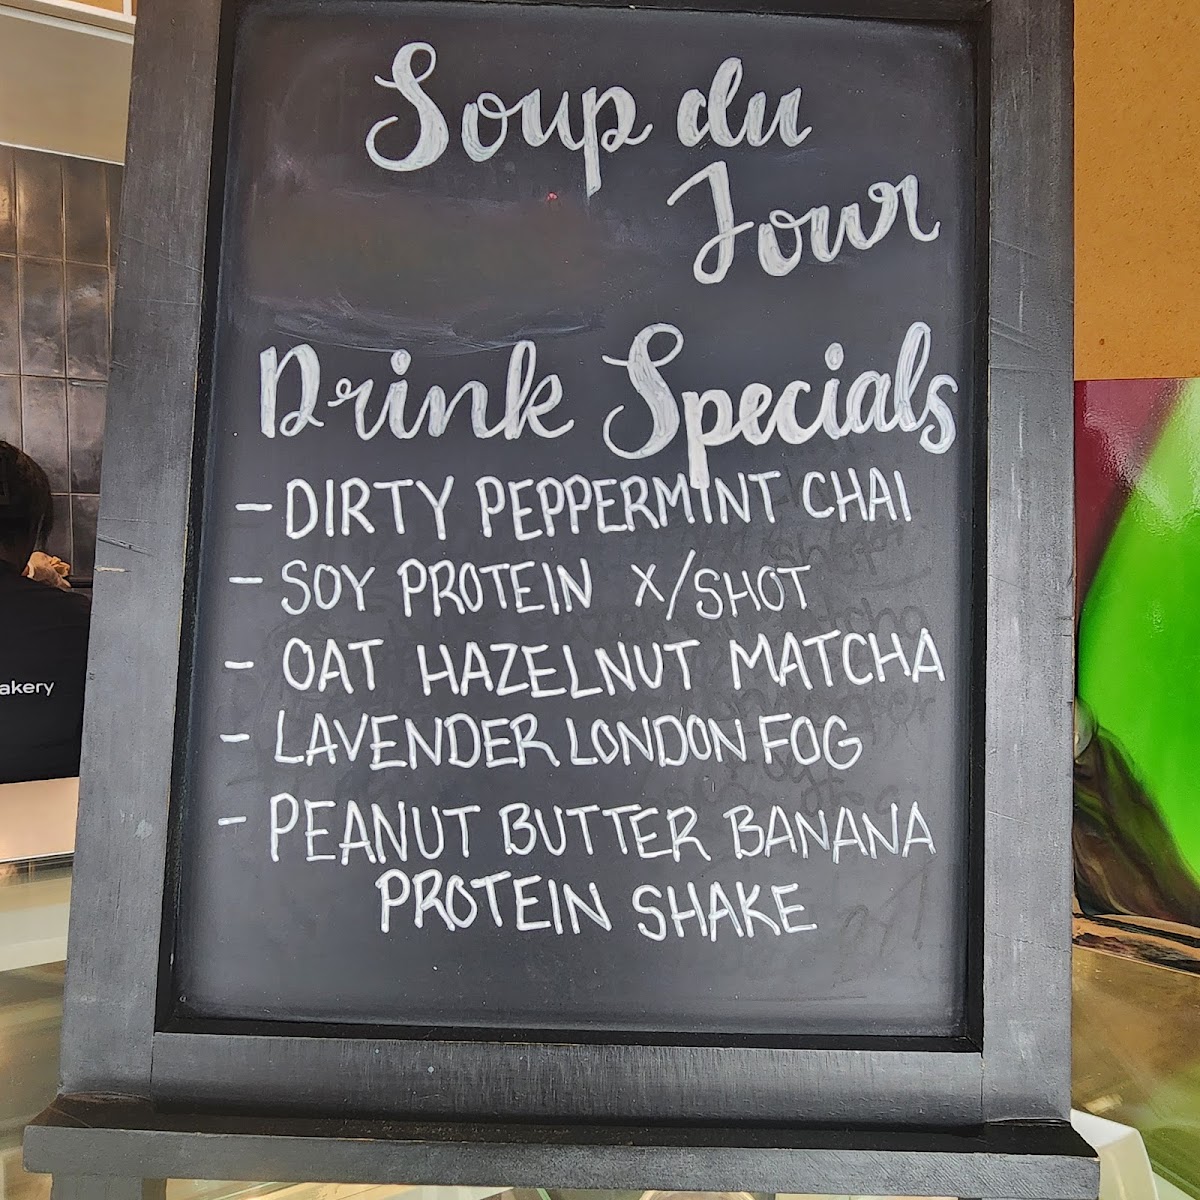 Soup du
Jour
Drink Specials
- DIRTY PEPPERMINT CHAI
- SOY PROTEIN X/SHOT
- OAT HAZELNUT MATCHA
- LAVENDER LONDON FOG
- PEANUT BUTTER BANANA
PROTEIN SHAKE
akery